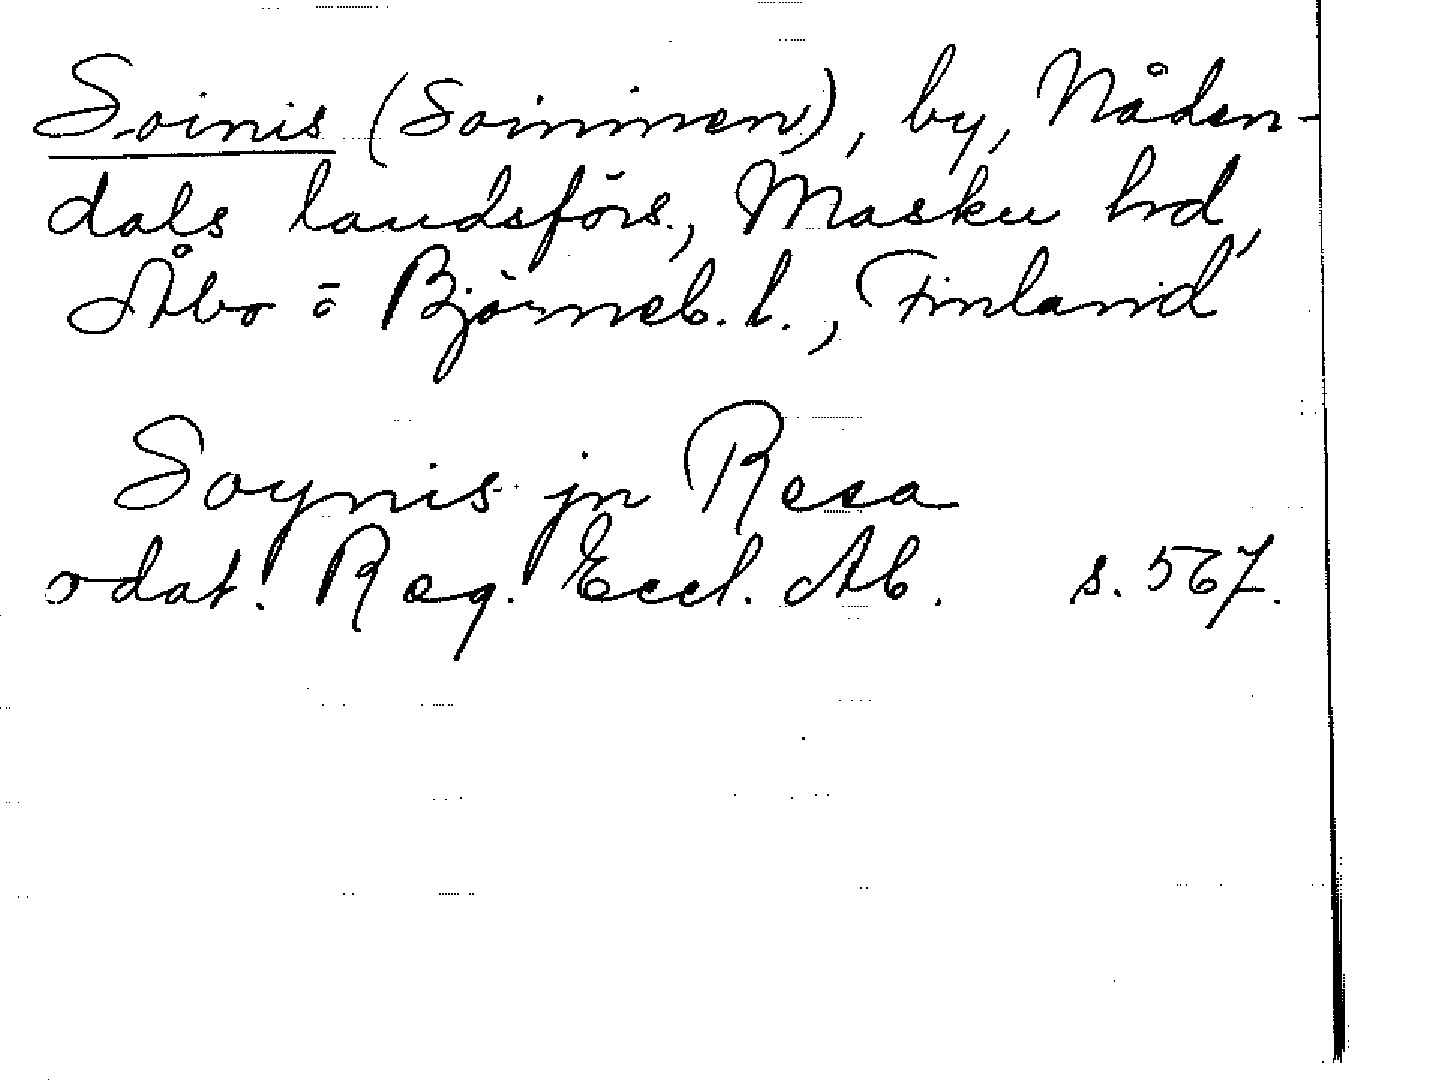 Soinis (Soininen), by, Nåden-
dals landsförs., Masku hd,
Åbo ö Björneb. l., Finland
Soynis jn Resa
odat. Reg. Eccl. Ab. s. 567.